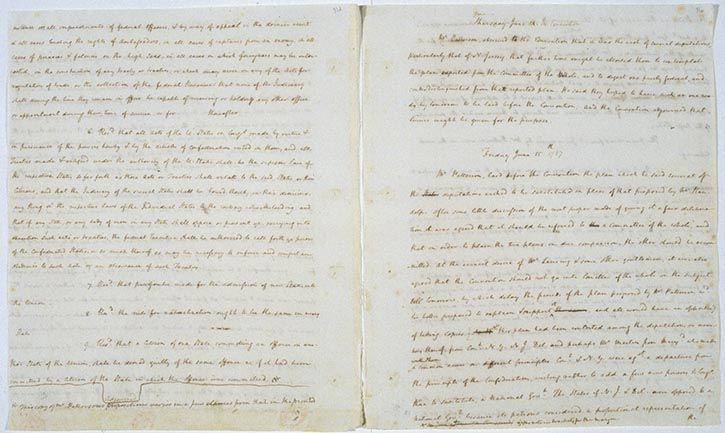 instance on all impeachments of federal officers, & by way of appeal in the dernier resort
in all cases touching the rights of Ambassadors, in all cases of captures from an enemy, in all
cases of piracies & felonies on the high Seas, in all cases in which foreigners may be inter-
ested, in the construction of any treaty or treaties, or which may arise on any of the Acts for
regulation of trade, or the collection of the federal Revenue: that none of the Judiciary
shall during the time they remain in office be capable of receiving or holding any other office
or appointment during their term of service, or for thereafter.
6. Resd. that all Acts of the U. States in Congs. made by virtue &
in pursuance of the powers hereby & by the articles of Confederation vested in them, and all
Treaties made & ratified under the authority of the U. States shall be the supreme law of
the respective States so far forth as those Acts or Treaties shall relate to the said States or their
Citizens, and that the Judiciary of the several States shall be bound thereby in their decisions,
any thing in the respective laws of the Individual States to the contrary notwithstanding; and
that if any State, or any body of men in any State shall oppose or prevent ye. carrying into
execution such acts or treaties, the federal Executive shall be authorized to call forth ye power
of the Confederated States, or so much thereof as may be necessary to enforce and compel an
obedience to such Acts, or an observance of such Treaties.
7. Resd. that provision be made for the admission of new States into
the Union.
8. Resd. the rule for naturalization ought to be the same in every
State
9. Resd. that a Citizen of one State committing an offence in ano-
ther State of the Union, shall be deemed guilty of the same offence as if it had been
committed by a Citizen of the State in which the offence was committed.
of Mr. Patterson's propositions varies in a few clauses from that in the printed
Journal
Thursday June 14. In Convention
Mr. Patterson, observed to the Convention that it was the wish of several deputations,
particularly that of N. Jersey, that further time might be allowed them to contemplate
the plan reported from the Committee of the Whole, and to digest one purely federal, and
contradistinguished from the reported plan. He said they hoped to have such an one rea-
dy by tomorrow to be laid before the Convention: and the Convention adjourned that
leisure might be given for the purpose.
Friday June 15th. 1787
Mr. Patterson, laid before the Convention the plan which he said several of
the deputations wished to be substituted in place of that proposed by Mr. Ran-
dolph. After some little discussion of the most proper mode of giving it a fair delibera-
tion it was agreed that it should be referred to a Committee of the whole, and
that in order to place the two plans in due comparison, the other should be recom-
mitted. At the earnest desire of Mr. Lansing & some other gentlemen, it was also
agreed that the Convention should not go into Committee of the whole on the subject
till tomorrow, by which delay the friends of the plan proposed by Mr. Patterson wd.
be better prepared to explain & support it, and all would have an opportuy.
of taking copies. this plan had been concerted among the deputations or mem-
bers thereof, from Cont. N. Y. N. J. Del. and perhaps Mr Martin from Maryd. who made
a common cause on different principles. Cont. & N. Y. were agst. a departure from
the principle of the Confederation, wishing rather to add a few new powers to Congs.
than to substitute, a National Govt. The States of N. J. & Del. were opposed to a
National Govt. because its patrons considered a proportional representation of
the